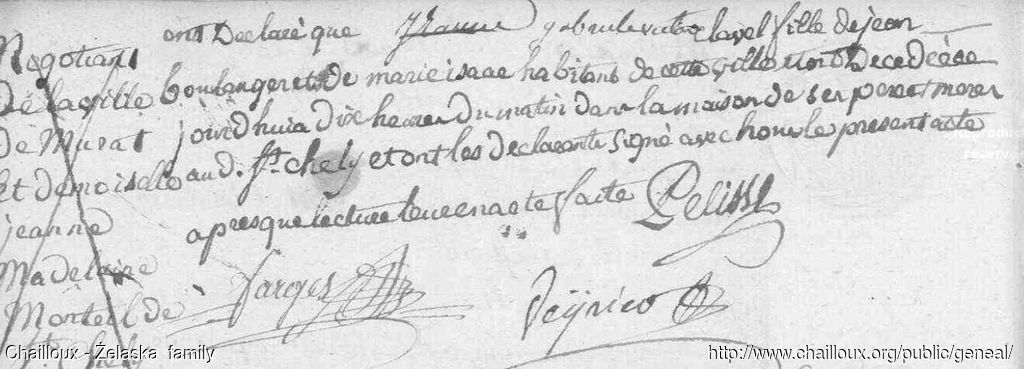 ont Declaré que Jeanne clavel fille de jean
boulanger et de marie isaac habitans de cette ville sont Decedée
jourdhui a Dix heures du matin dans la maison de ses pere et mere
au d. St. chely et ont les declarants signé avec nous le present acte
apres que lecture leur en a ete faite Pelisse
farges Peÿrico
Negotiant
de la ville
de Murat
Et demoiselle
jeanne
Madelaine
Monteil de
St. chely
Chailloux - Želaska family
http://www.chailloux.org/public/geneal/